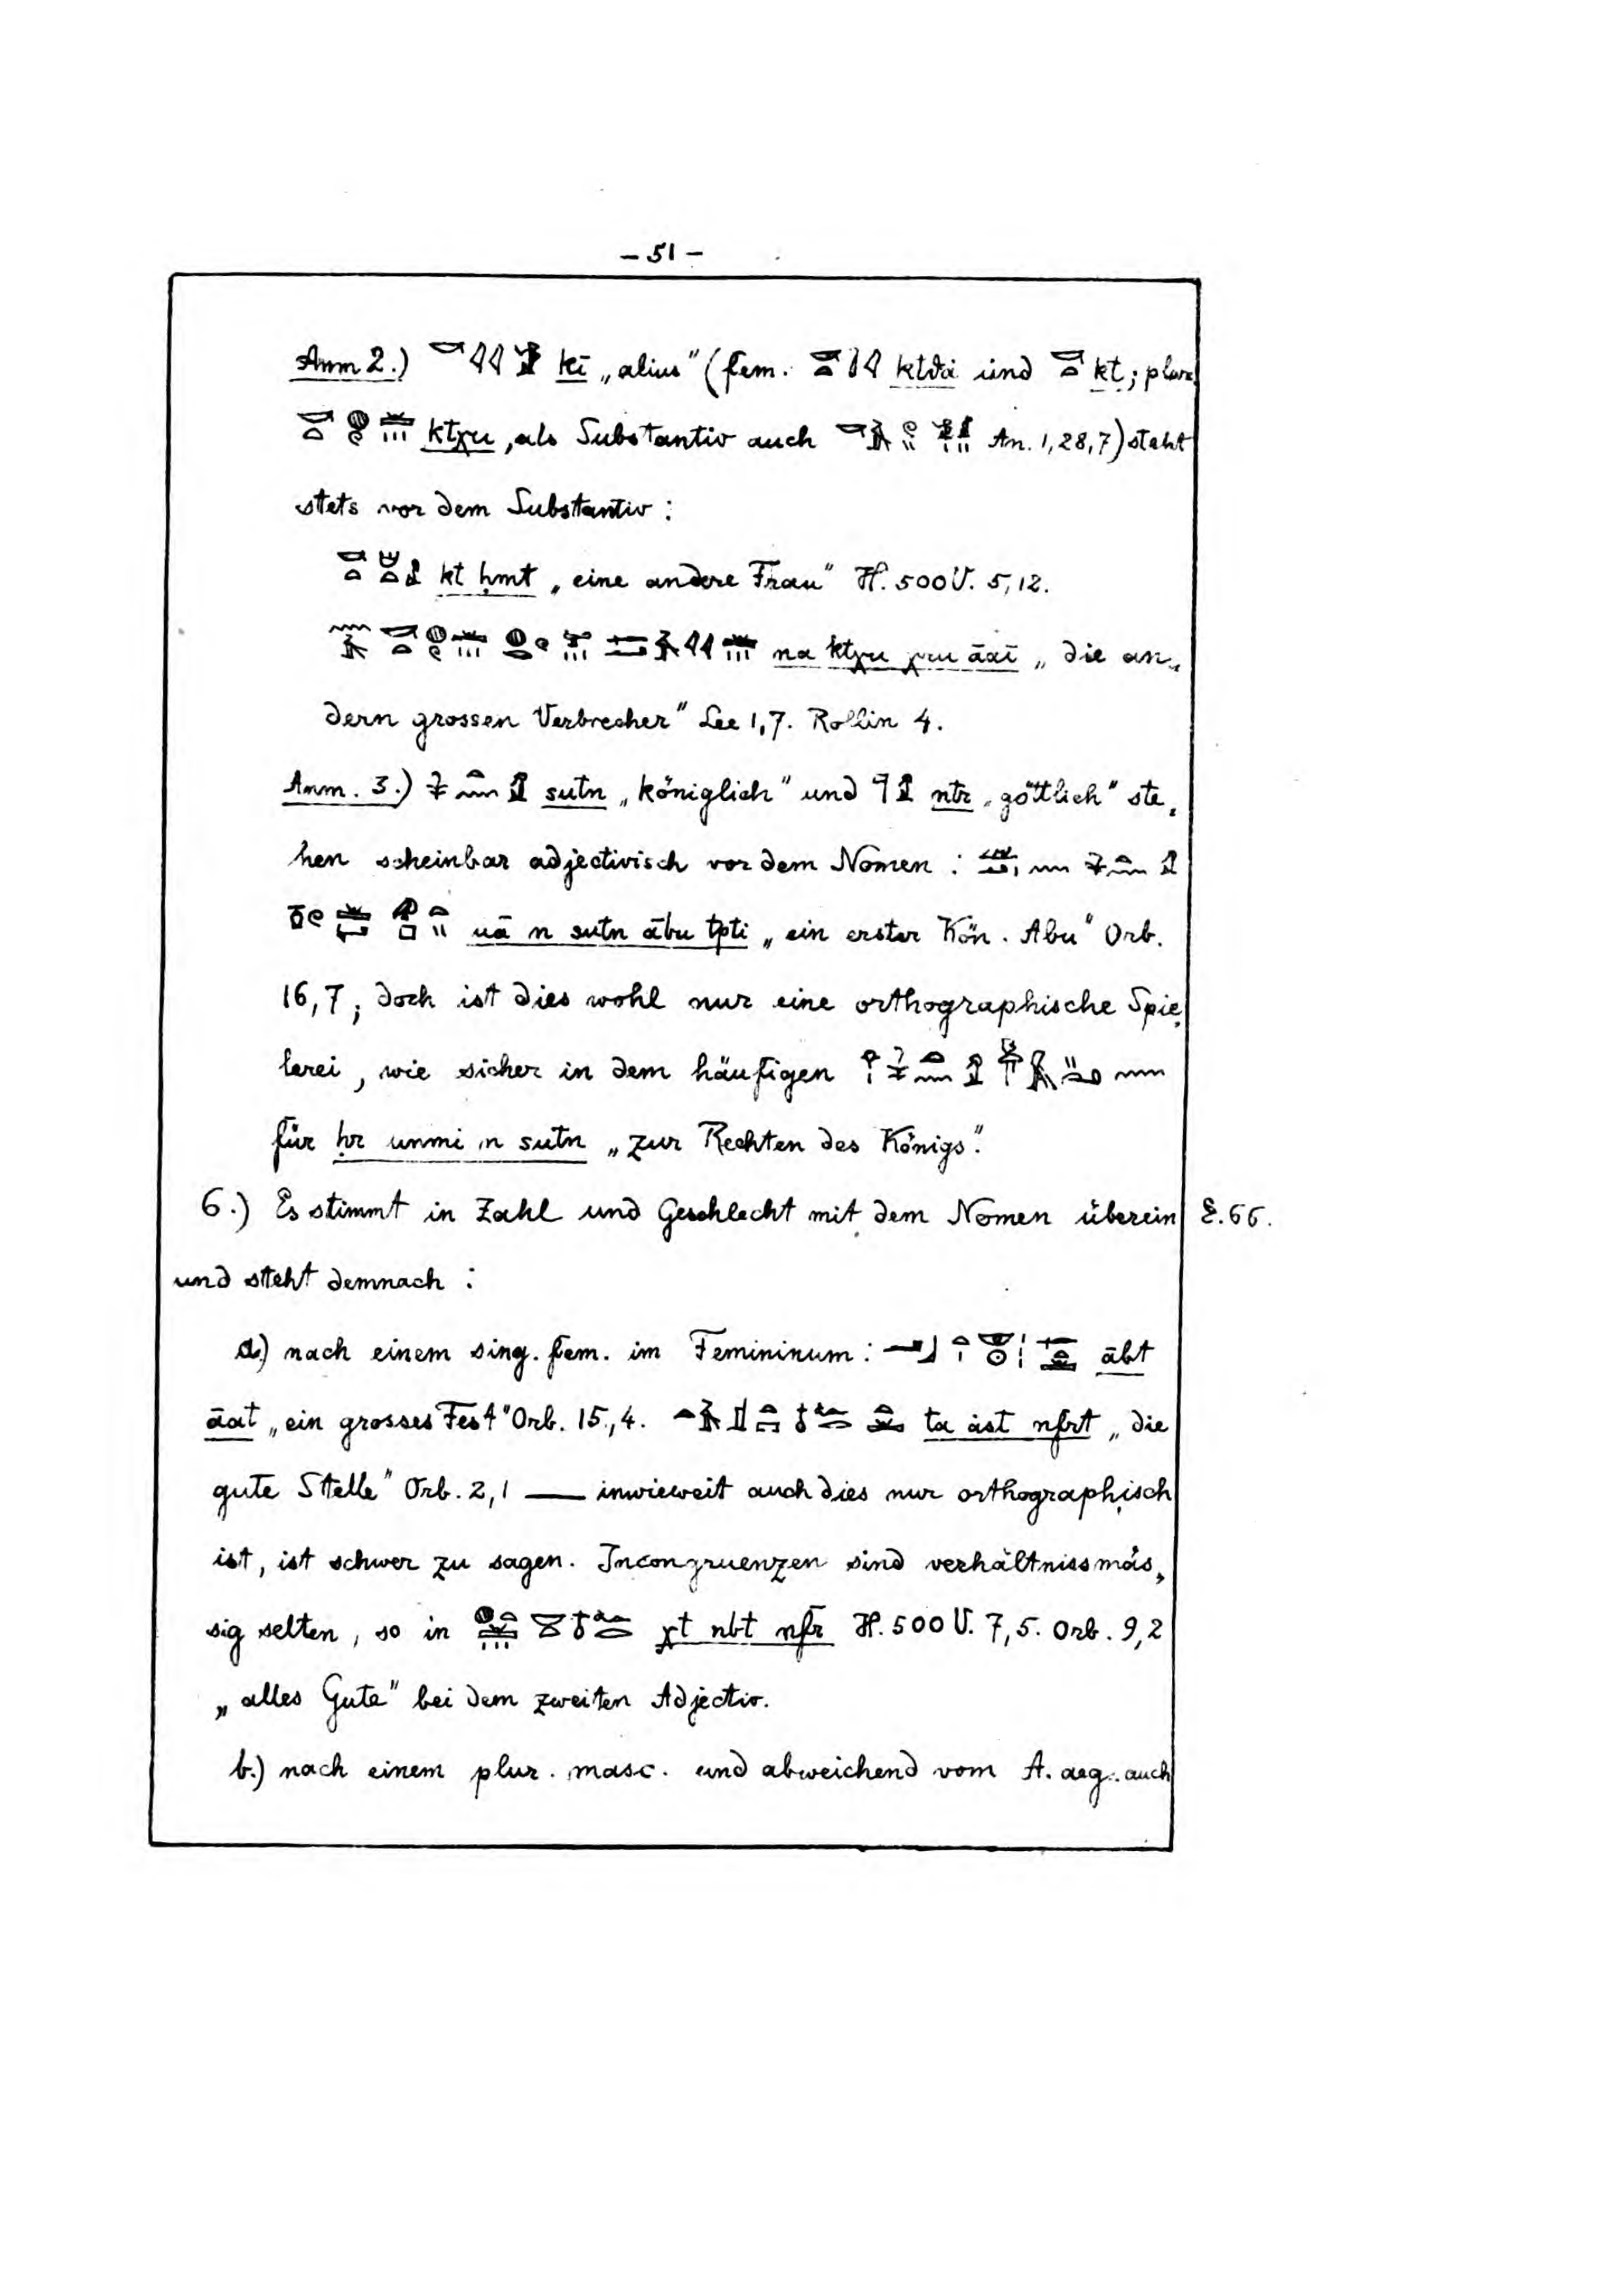 – 51 –
Anm 2.) kī „alius" (fem. und kt; plur.
ktχu, als Substantiv auch An. 1, 28, 7) steht
stets vor dem Substantiv:
kt ḥmt „eine andere Frau" H. 500 V. 5, 12.
na ktχu χru āaī „die an„
dern grossen Verbrecher" Lee 1, 7. Rollin 4.
Anm. 3.) sutn „königlich" und ntr „göttlich" ste„
hen scheinbar adjectivisch vor dem Nomen:
uā n sutn ābu tpti „ein erster Kön. Abu" Orb.
16, 7; doch ist dies wohl nur eine orthographische Spie„
lerei, wie sicher in dem häufigen
für ḥr unmi n sutn „zur Rechten des Königs".
6.) Es stimmt in Zahl und Geschlecht mit dem Nomen überein §. 66.
und steht demnach:
a.) nach einem sing. fem. im Femininum: ābt
āat „ein grosses Fest" Orb. 15, 4. ta ȧst nfrt „die
gute Stelle" Orb. 2, 1 — inwieweit auch dies nur orthographisch
ist, ist schwer zu sagen. Incongruenzen sind verhältnissmäs„
sig selten, so in χt nbt nfr H. 500 V. 7, 5. Orb. 9, 2
„alles Gute" bei dem zweiten Adjectiv.
b.) nach einem plur. masc. und abweichend vom A. aeg. auch